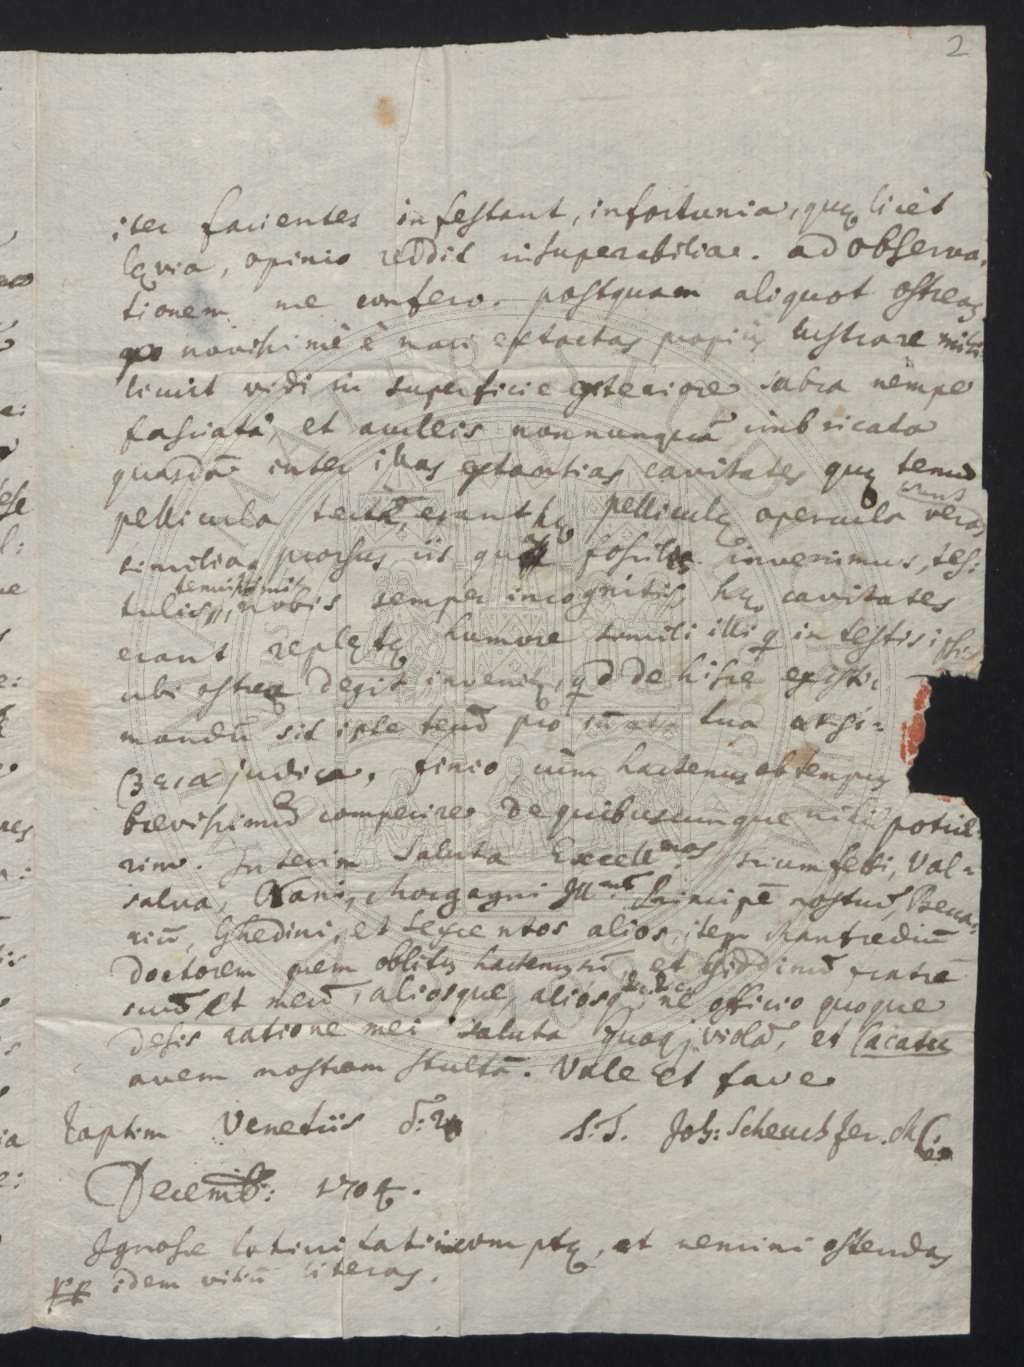 2
iter facientes infestant, infortunia, quę licèt
lęvia, opinio reddit insuperabilia. ad observa-
tionem me confero. postquam aliquot ostreas
novissimè è mari extractas propiùs lustrare mihi
licuit vidi in superficie exteriore scabra nempe
fasciatâ, et aculeis nonnunquã imbricata
quasdã inter illas extantias cavitates quę tenui
pellicula tectæ erant hę pelliculę opercula veras
similia prorsus iis quæ fossiles invenimus, tes:
tulis tenuissimis nobis semper incognitis, hę cavitates
erant replętę humore simili illi q in testis ipsis
ubi ostrea degit invenit, qd de hisce existi-
mandũ sit iste tenũ pro tua
judica. finio, cùm hactenus ob tempus
brevissimũ comperire de quibuscunque nihil potue:
rim. Interim saluta Excell.mos Triumfetti, Val-
salva, Nani, Morgagni Ill.mũ Principẽ nostrũ, Becca-
riũ, Ghedini, et sexcentos alios, item Manfrediũ
doctorem quem oblitus hactenus sũ, et Ghedinũ fratrẽ
suũ et meũ, aliosque, aliosq ne officio quoque
desis ratione mei saluta quoq violã, et Cacatu
avem nostram stultã. Vale et fave
Raptim Venetiis d: 2
S.T. Joh: Scheuchzer. M
Decemb: 1704.
Ignosce latinitati incomptę, et nemini ostendas
idem vitiũ literas.